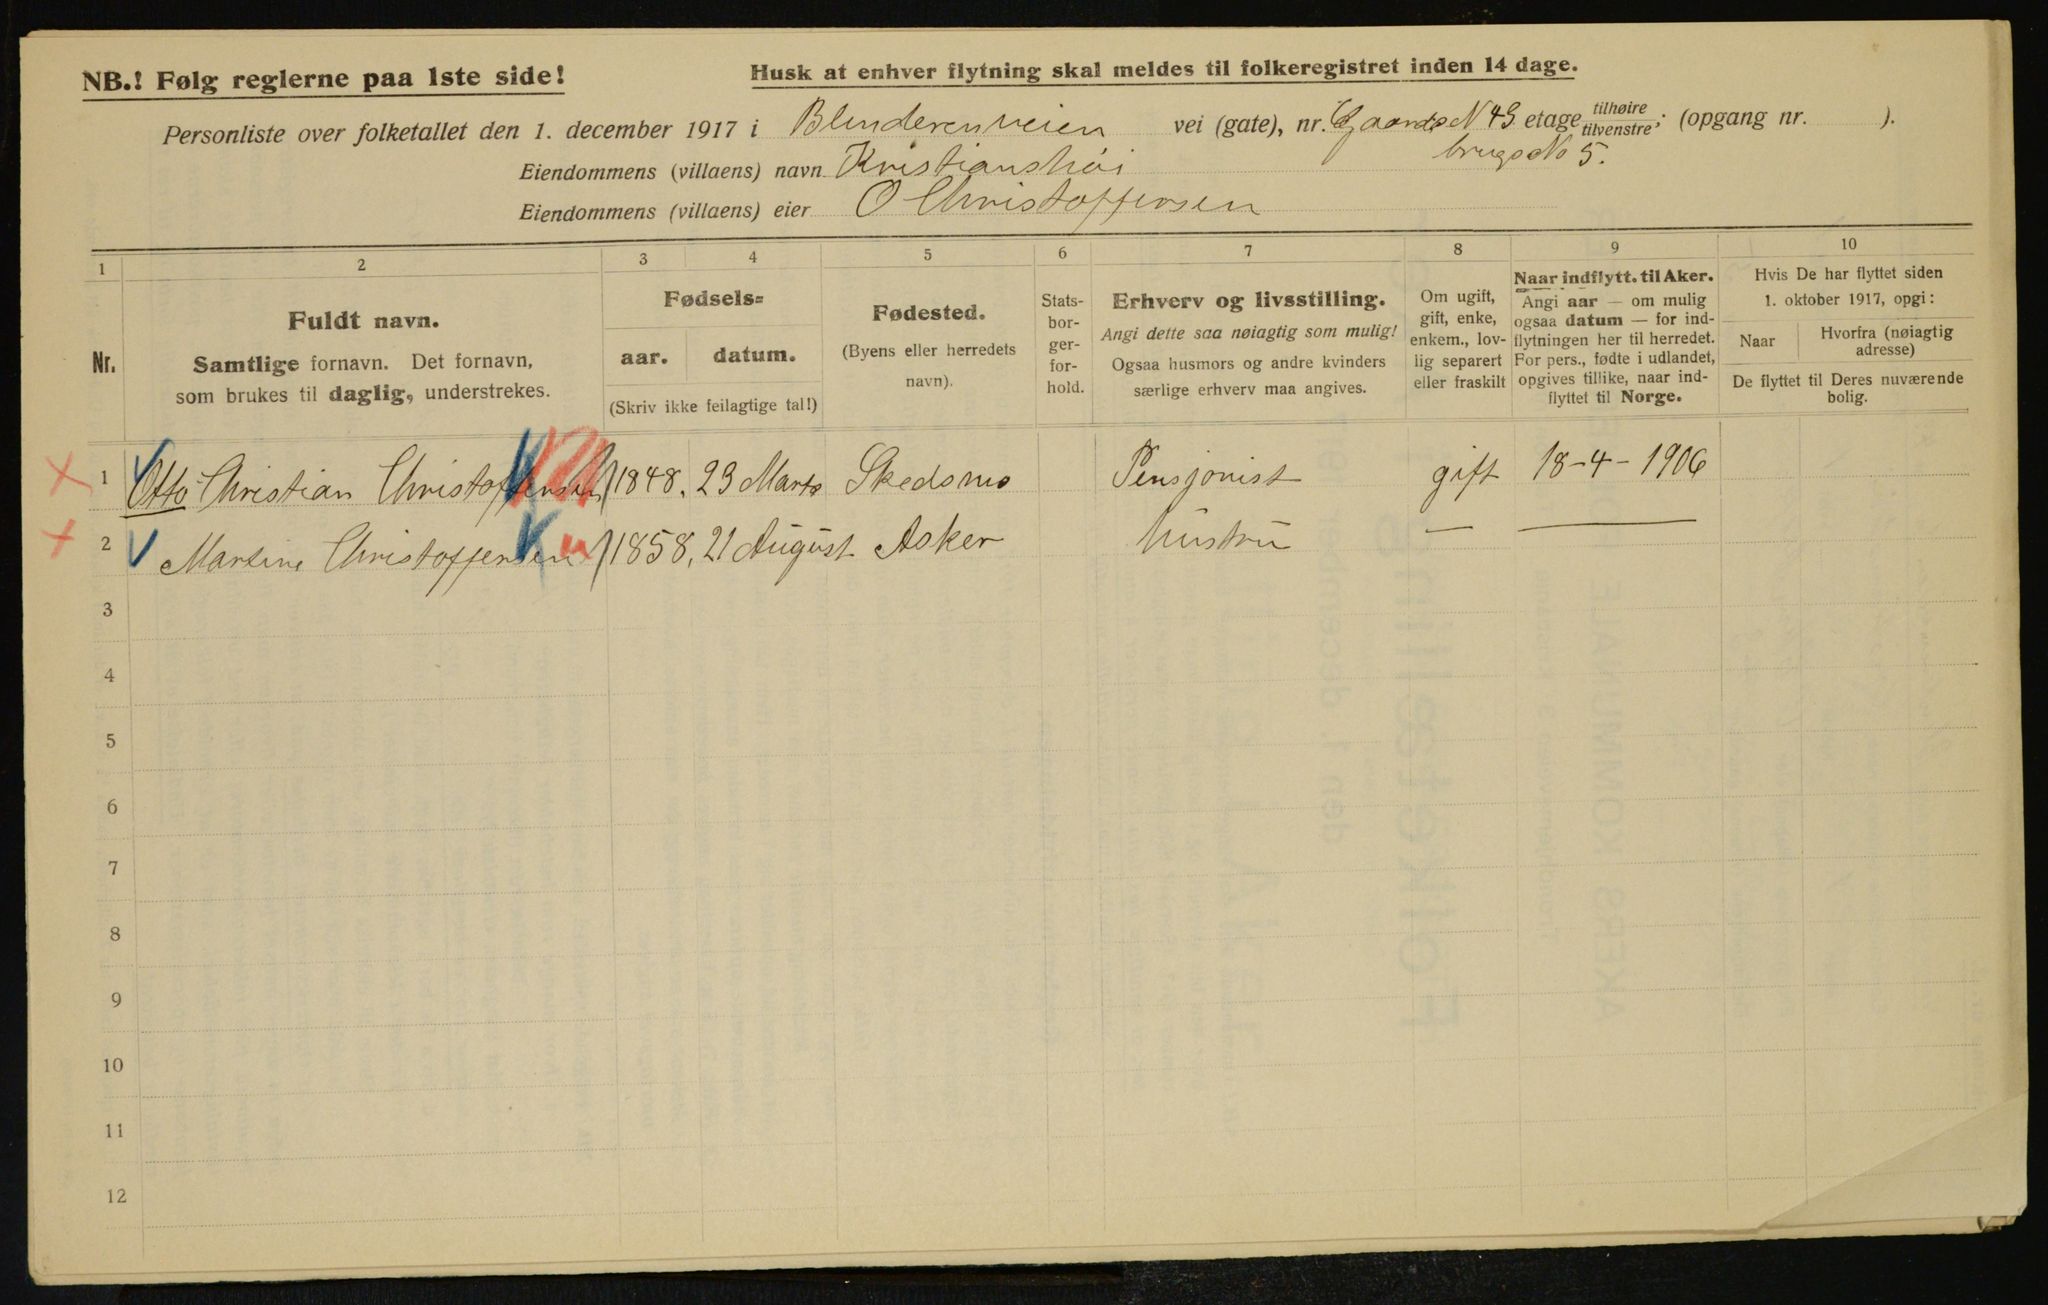 NB.! Følg reglerne paa 1ste side!
Husk at enhver flytning skal meldes til folkeregistret inden 14 dage.
Personliste over folketallet den 1. december 1917 i Blinderenveien vei (gate), nr. Gaards N 43 etage tilhøire/tilvenstre; (opgang nr. ).
brugs No 5.
Eiendommens (villaens) navn Kristianshöi
Eiendommens (villaens) eier O Christoffersen
1 2 3 4 5 6 7 8 9 10
Nr.
Fuldt navn.
Samtlige fornavn. Det fornavn,
som brukes til daglig, understrekes.
Fødsels=
aar. datum.
(Skriv ikke feilagtige tal!)
Fødested.
(Byens eller herredets
navn).
Stats-
bor-
ger-
for-
hold.
Erhverv og livsstilling.
Angi dette saa nøiagtig som mulig!
Ogsaa husmors og andre kvinders
særlige erhverv maa angives.
Om ugift,
gift, enke,
enkem., lov-
lig separert
eller fraskilt
Naar indflytt. til Aker.
Angi aar — om mulig
ogsaa datum — for ind-
flytningen her til herredet.
For pers., fødte i utlandet,
opgives tillike, naar ind-
flyttet til Norge.
Hvis De har flyttet siden
1. oktober 1917, opgi:
Naar
Hvorfra (nøiagtig
adresse)
De flyttet til Deres nuværende
bolig.
1 Otto Christian Christoffersen 1848. 23 Marts Skedsmo Pensjonist gift 18-4-1906
2 Martine Christoffersen 1858. 21 August Asker hustru — —
3
4
5
6
7
8
9
10
11
12